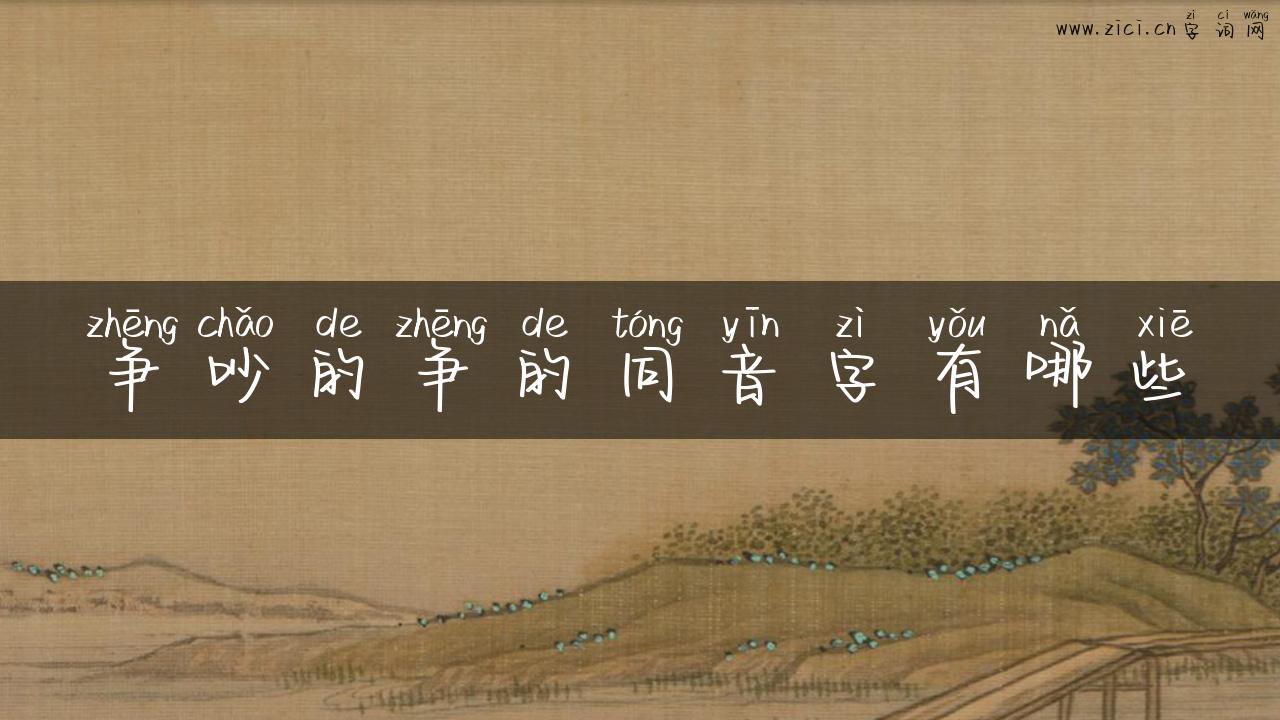 zì cí wǎng
www.zici.cn 字词网
zhēng chǎo de zhēng de tóng yīn zì yǒu nǎ xiē
争吵的争的同音字有哪些